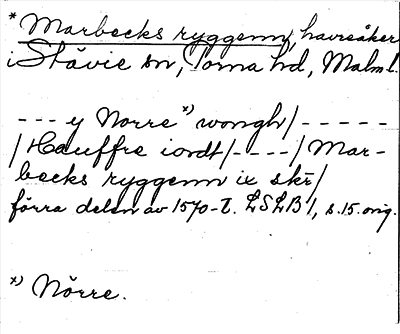 * Marbecks ryggenn, havreåker
i Stävie sn, Torna hd, Malm l.
--- y Norre *) wongh/-----
/Hauffre iordt/----/Mar-
becks ryggenn ix skr/
förra delen av 1570-t. LSLB 1, s. 15. orig.
*) Nörre.